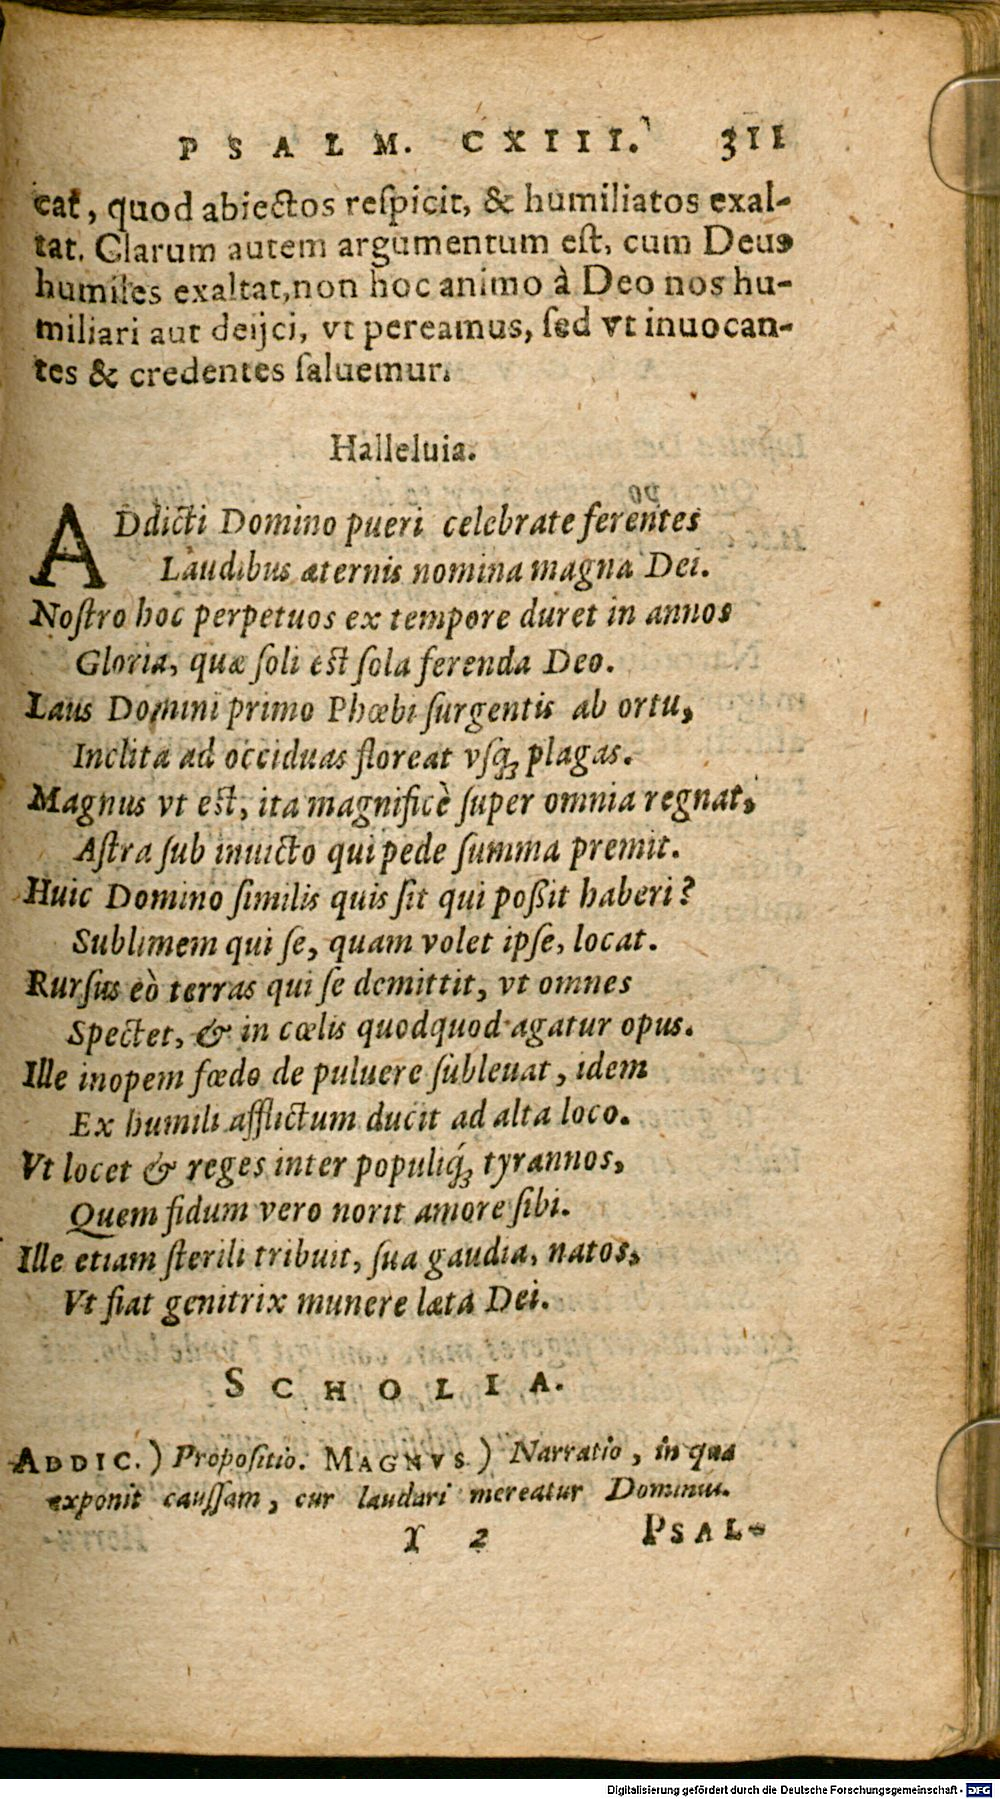 PSALM. CXIII. 311
cat, quod abiectos reſpicit, & humiliatos exal-
tat. Clarum autem argumentum eſt, cum Deus
humiles exaltat, non hoc animo à Deo nos hu-
miliari aut deijci, vt pereamus, ſed vt inuocan-
tes & credentes ſaluemur.
Halleluia.
ADdicti Domino pueri celebrate ferentes
Laudibus æternis nomina magna Dei.
Noſtro hoc perpetuos ex tempore duret in annos
Gloria, quæ ſoli eſt ſola ferenda Deo.
Laus Domini primo Phœbi ſurgentis ab ortu,
Inclita ad occiduas floreat vſq; plagas.
Magnus vt eſt, ita magnificè ſuper omnia regnat,
Aſtra ſub inuicto qui pede ſumma premit.
Huic Domino ſimilis quis ſit qui poßit haberi?
Sublimem qui ſe, quam volet ipſe, locat.
Rurſus eò terras qui ſe demittit, vt omnes
Spectet, & in cœlis quodquod agatur opus.
Ille inopem fœdo de puluere ſubleuat, idem
Ex humili afflictum ducit ad alta loco.
Vt locet & reges inter populiq́; tyrannos,
Quem fidum vero norit amore ſibi.
Ille etiam ſterili tribuit, ſua gaudia, natos,
Vt fiat genitrix munere læta Dei.
SCHOLIA.
ADDIC.) Propoſitio. MAGNVS) Narratio, in qua
exponit cauſſam, cur laudari mereatur Dominus.
Y 2 PSAL-
Digitalisierung gefördert durch die Deutsche Forschungsgemeinschaft - DFG